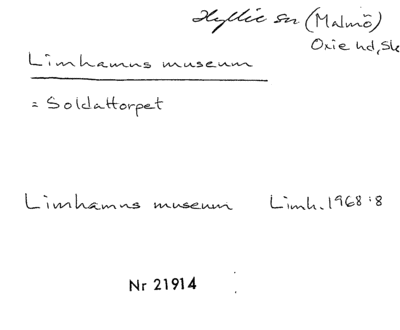 Hyllie sn (Malmö)
Oxie hd, Sk
Limhamns museum
= Soldattorpet
Limhamns museum Limh. 1968:8
Nr 21914